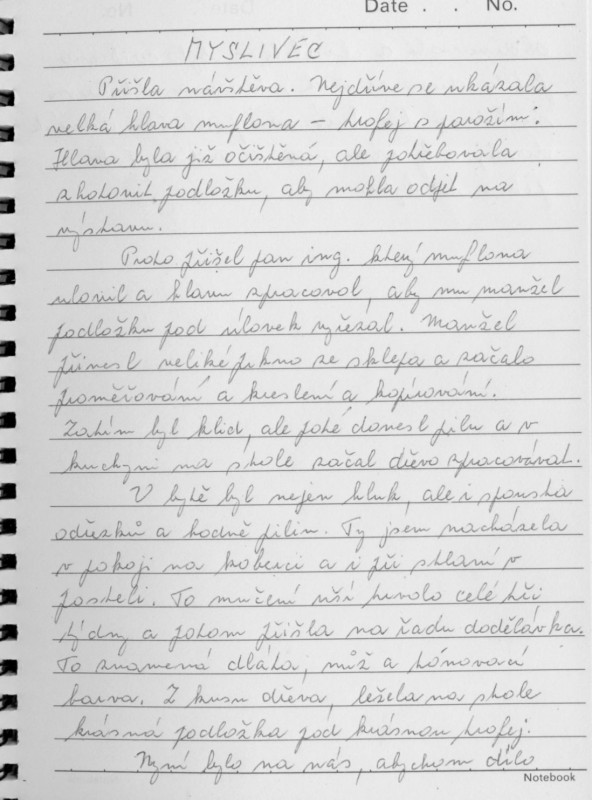 Date . . No.
MYSLIVEC
Přišla návštěva. Nejdříve se ukázala
velká hlava muflona – trofej s parožím.
Hlava byla již očištěná, ale potřebovala
zhotovit podložku, aby mohla odjet na
výstavu.
Proto přišel pan ing. který muflona
ulovil a hlavu zpracoval, aby mu manžel
podložku pod úlovek vyřezal. Manžel
přinesl veliké prkno ze sklepa a začalo
proměřování a kreslení a kopírování.
Zatím byl klid, ale poté donesl pilu a v
kuchyni na stole začal dřevo zpracovávat.
V bytě byl nejen hluk, ale i spousta
odřezků a hodně pilin. Ty jsem nacházela
v pokoji na koberci a i při stlaní v
posteli. To mučení uší trvalo celé tři
týdny a potom přišla na řadu dodělávka.
To znamená dláta, nůž a tónovací
barva. Z kusu dřeva, ležela na stole
krásná podložka pod krásnou trofej.
Nyní bylo na nás, abychom dílo
Notebook